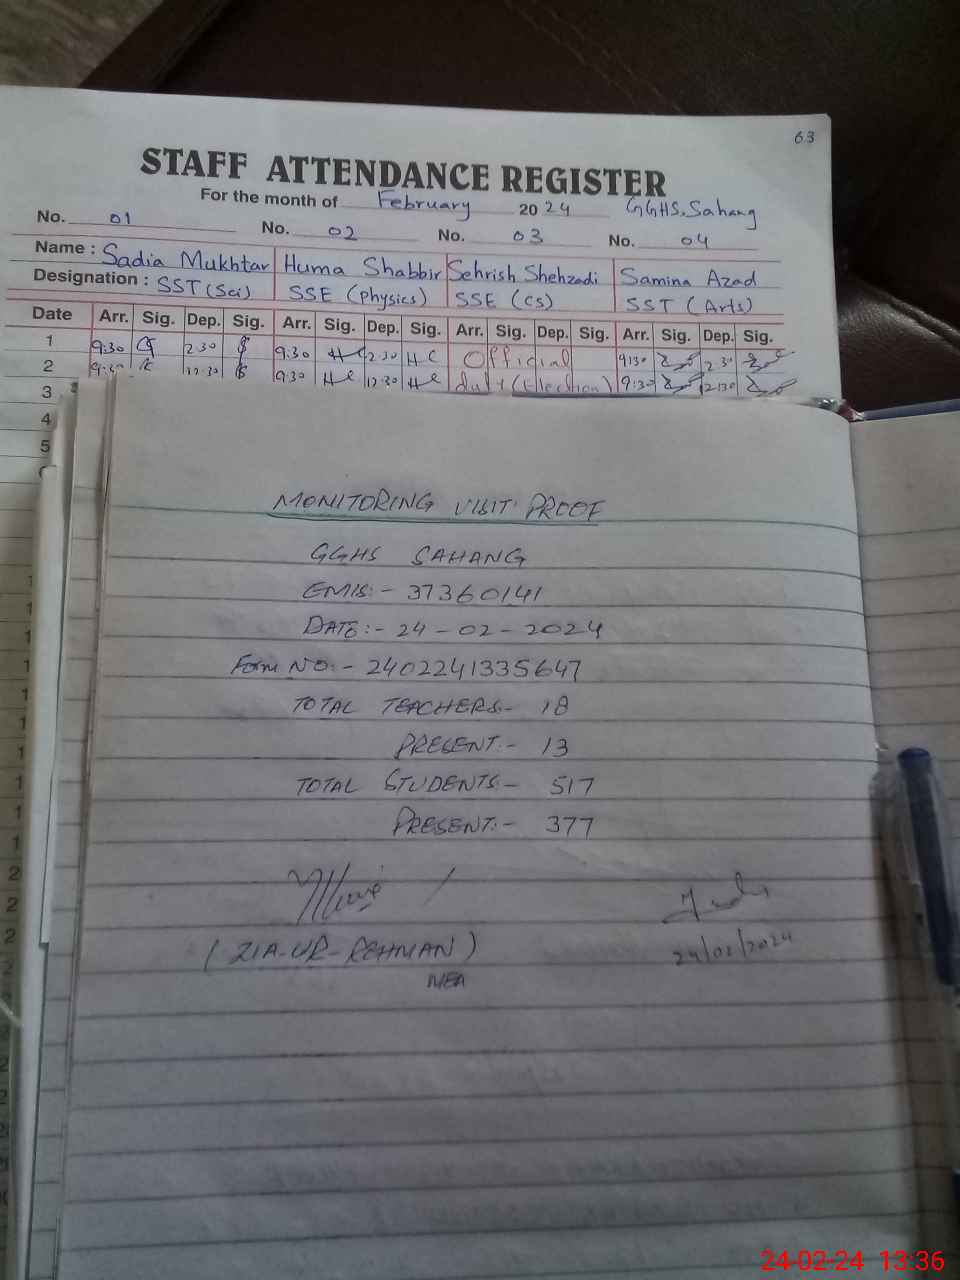 63
STAFF ATTENDANCE REGISTER
For the month of February 2024 GGHS. Sahang
No. 01 No. 02 No. 03 No. 04
Name : Sadia Mukhtar Huma Shabbir Sehrish Shehzadi Samina Azad
Designation : SST (Sci) SSE (Physics) SSE (CS) SST (Arts)
Date Arr. Sig. Dep. Sig. Arr. Sig. Dep. Sig. Arr. Sig. Dep. Sig. Arr. Sig. Dep. Sig.
1 9:30 2:30 9:30 2:30 Official 9:30 2:30
2 9:30 12:30 9:30 12:30 duty (Election) 9:30 12:30
3
4
5
MONITORING VISIT PROOF
GGHS SAHANG
EMIS:- 37360141
DATE:- 24-02-2024
Form NO:- 2402241335647
TOTAL TEACHERS:- 18
PRESENT:- 13
TOTAL STUDENTS:- 517
PRESENT:- 377
(ZIA-UR-REHMAN)
24/02/2024
MEA
24-02-24 13:36